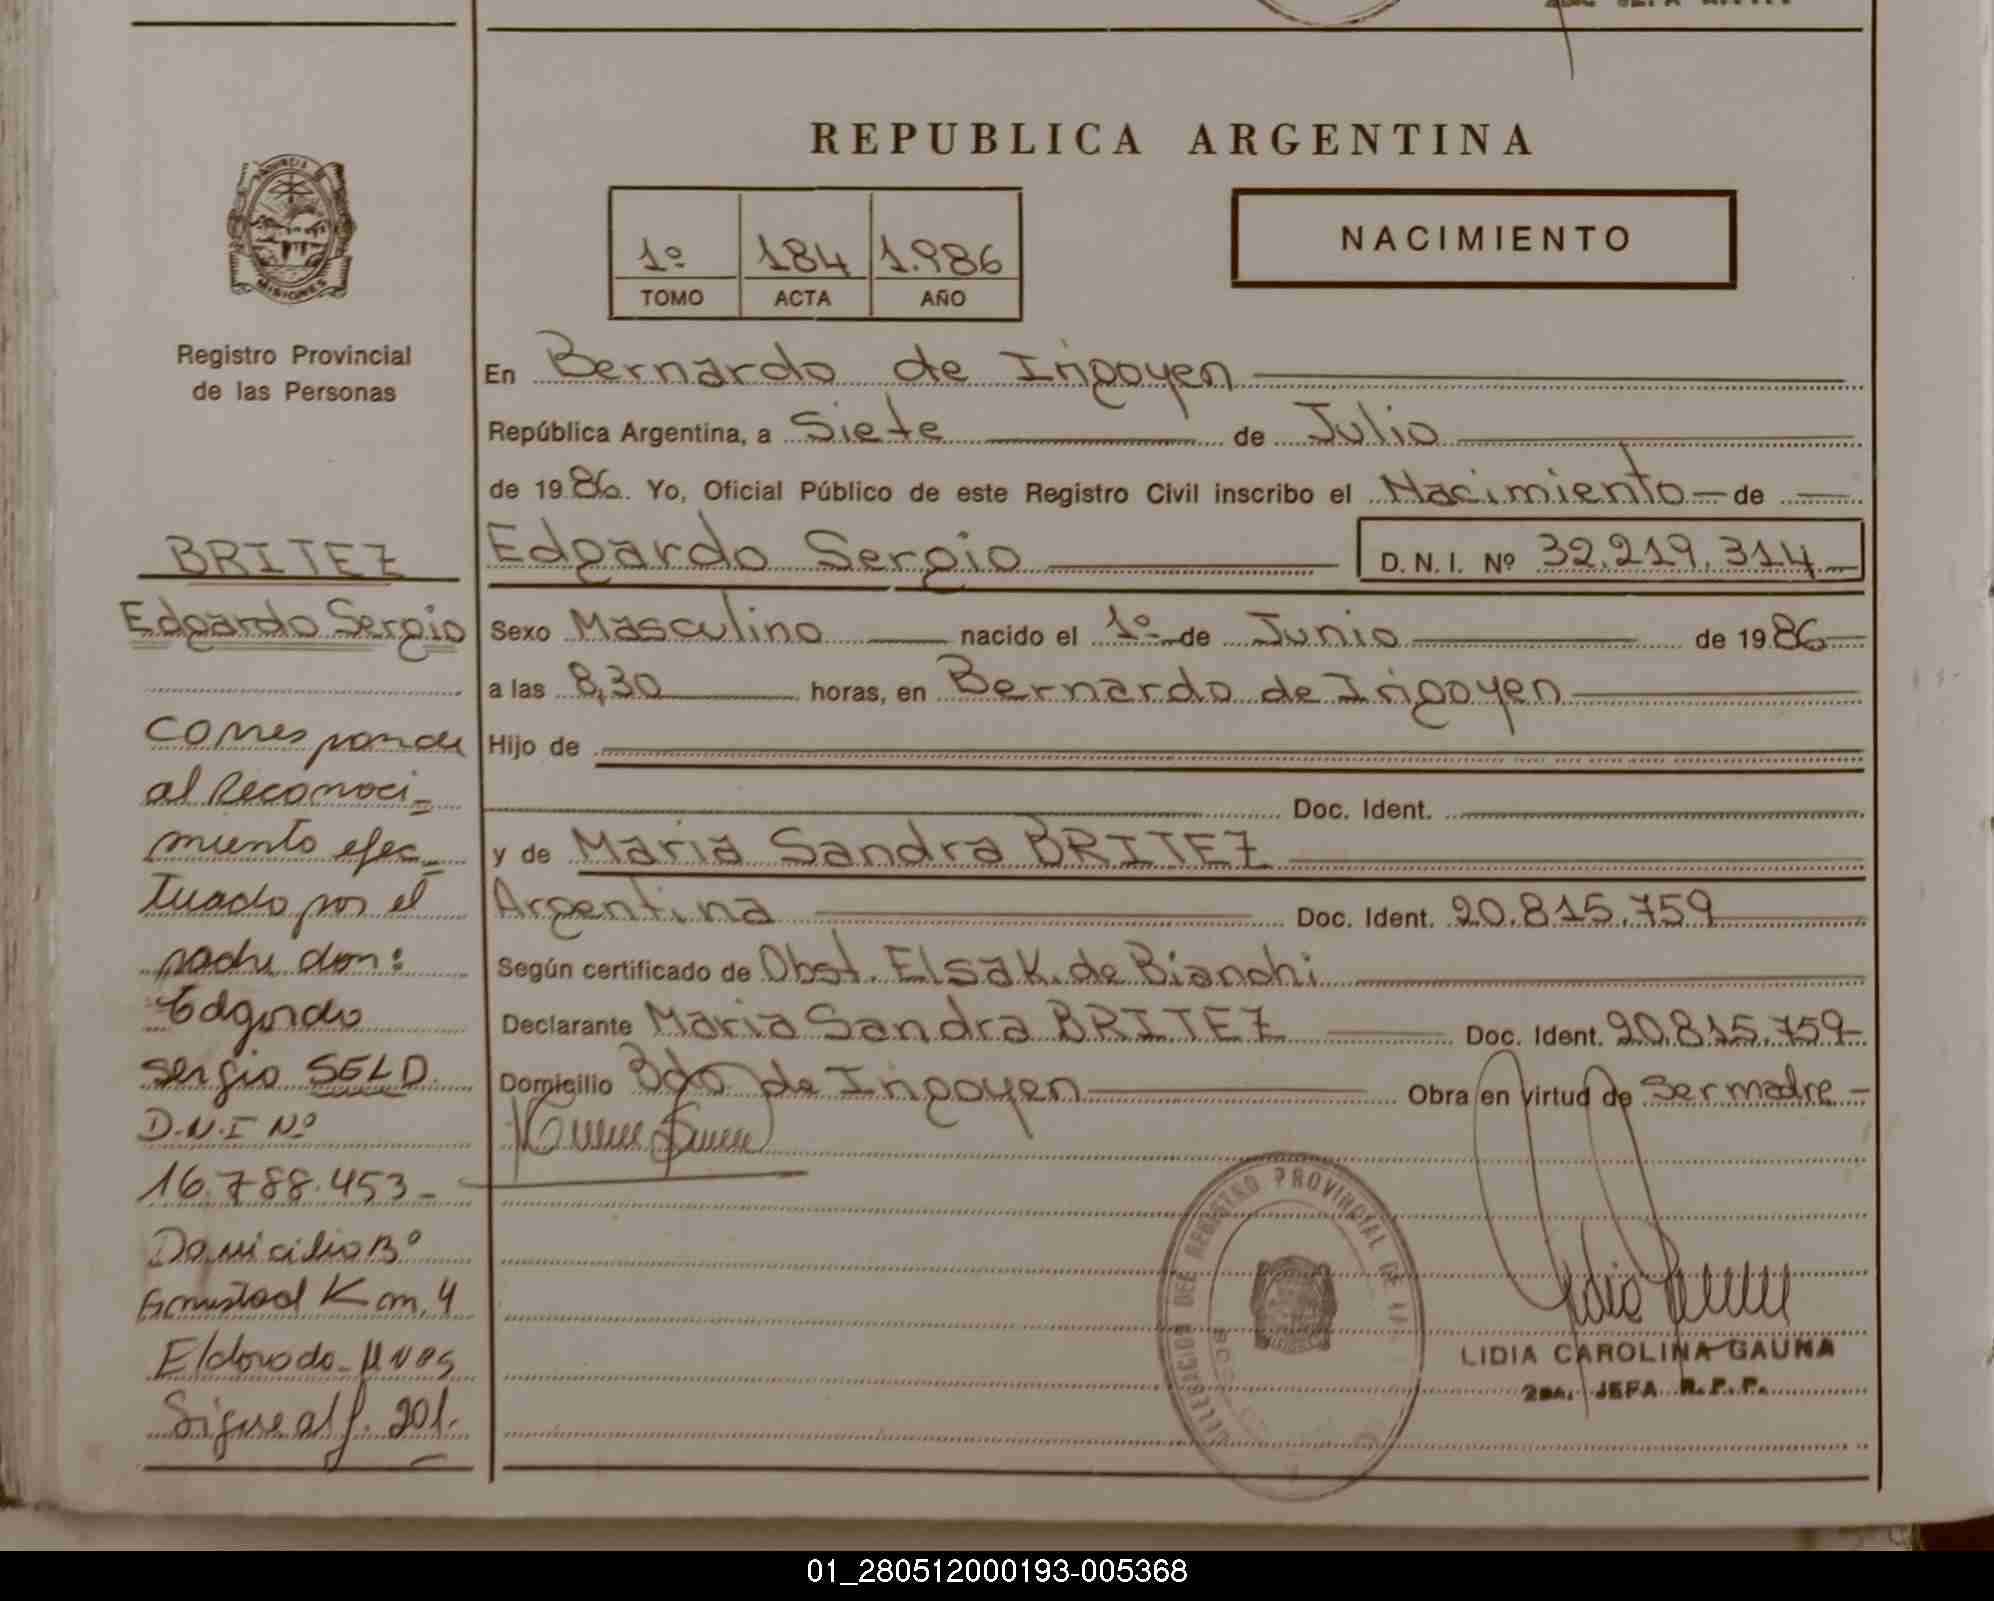 REPUBLICA ARGENTINA
1º 184 1.986
TOMO ACTA AÑO
NACIMIENTO
MISIONES
Registro Provincial
de las Personas
BRITEZ
Edgardo Sergio
Corresponde
al Reconoci-
miento efec-
tuado por el
padre don:
Edgardo
Sergio SELD
D.N.I Nº
16.788.453-
Domicilio Bº
Km. 4
Eldorado-
Sigue al f. 201.
En Bernardo de Irigoyen
República Argentina, a Siete de Julio
de 1986. Yo, Oficial Público de este Registro Civil inscribo el Nacimiento de
Edgardo Sergio D.N.I. Nº 32.219.314
Sexo Masculino nacido el 1º de Junio de 1986
a las 8,30 horas, en Bernardo de Irigoyen
Hijo de
Doc. Ident.
y de Maria Sandra BRITEZ
Argentina Doc. Ident. 20.815.759
Según certificado de Obst. Elsa K. de Bianchi
Declarante Maria Sandra BRITEZ Doc. Ident. 20.815.759
Domicilio Bdo de Irigoyen Obra en virtud de Ser madre
DELEGACION DEL REGISTRO PROVINCIAL DE
LIDIA CAROLINA GAUNA
2da. JEFA R.P.P.
01_280512000193-005368